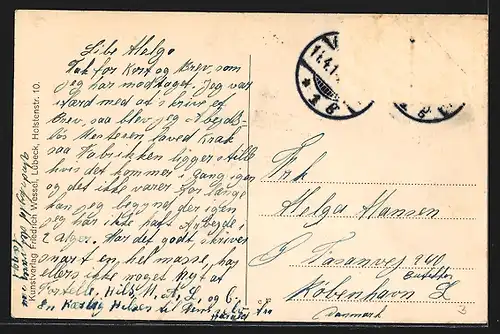 Libe Helga
Tak for Kort og Brev, som
jeg har modtaget. Jeg var
ifærd med at skrive et
Brev, saa blev jeg Arbejds-
løs Mesteren lavede Krak
saa Fabrikken ligger stille
hvis det kommer i gang igen
og det ikke varer for længe
kan jeg begynde der igen
jeg har ikke haft Arbejde i
2 Dage. Har det godt, skriver
snart en hel masse, har
ellers ikke noget Nyt at
fortælle. Hils M. A. L. og C.
En Kærlig Hilsen til
Kunstverlag Friedrich Wessel, Lübeck, Holstenstr. 10.
11.4.1
* 1 8
Frk
Helga Hansen
P. Tasanvej 240
København L
Danmark